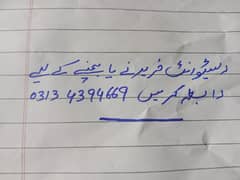 ریسٹورانٹ خریدنے یا بیچنے کے لیے
رابطہ کریں 0313 4394669